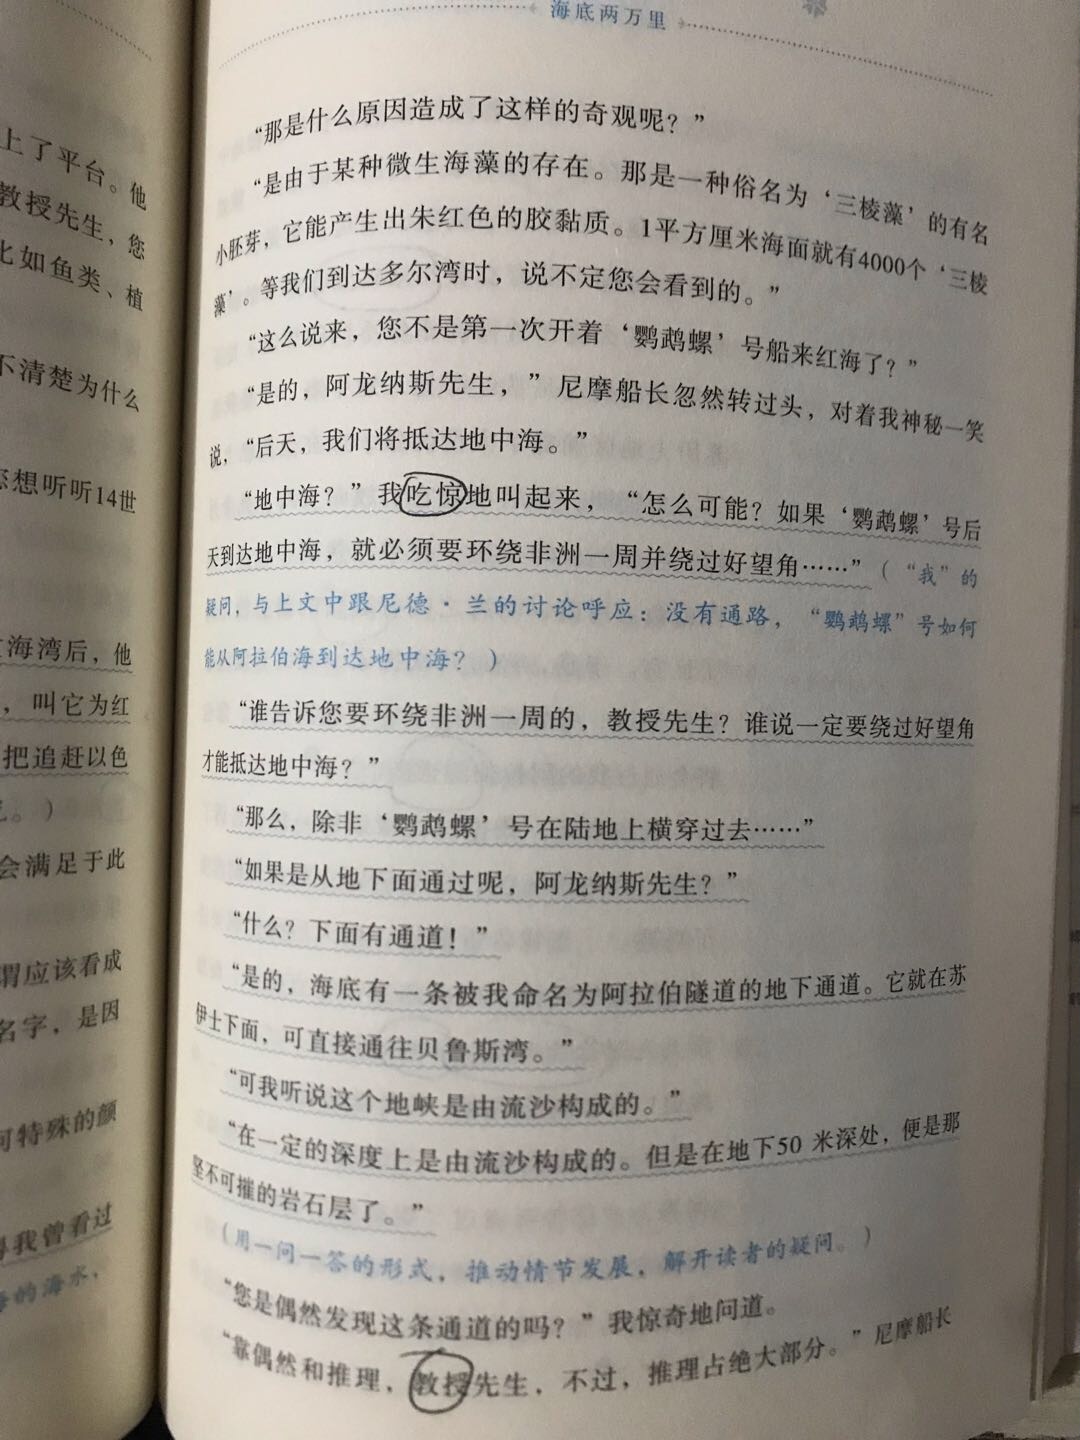 上了平台。他
教授先生，您
比如鱼类、植
不清楚为什么
您想听听14世
海湾后，他
，叫它为红
把追赶以色
。）
会满足于此
谓应该看成
名字，是因
何特殊的颜
得我曾看过
的海水，
海底两万里
“那是什么原因造成了这样的奇观呢？”
“是由于某种微生海藻的存在。那是一种俗名为‘三棱藻’的有名
小胚芽，它能产生出朱红色的胶黏质。1平方厘米海面就有4000个‘三棱
藻’。等我们到达多尔湾时，说不定您会看到的。”
“这么说来，您不是第一次开着‘鹦鹉螺’号船来红海了？”
“是的，阿龙纳斯先生，”尼摩船长忽然转过头，对着我神秘一笑
说，“后天，我们将抵达地中海。”
“地中海？”我吃惊地叫起来，“怎么可能？如果‘鹦鹉螺’号后
天到达地中海，就必须要环绕非洲一周并绕过好望角……”（“我”的
疑问，与上文中跟尼德·兰的讨论呼应：没有通路，“鹦鹉螺”号如何
能从阿拉伯海到达地中海？）
“谁告诉您要环绕非洲一周的，教授先生？谁说一定要绕过好望角
才能抵达地中海？”
“那么，除非‘鹦鹉螺’号在陆地上横穿过去……”
“如果是从地下面通过呢，阿龙纳斯先生？”
“什么？下面有通道！”
“是的，海底有一条被我命名为阿拉伯隧道的地下通道。它就在苏
伊士下面，可直接通往贝鲁斯湾。”
“可我听说这个地峡是由流沙构成的。”
“在一定的深度上是由流沙构成的。但是在地下50 米深处，便是那
坚不可摧的岩石层了。”
（用一问一答的形式，推动情节发展，解开读者的疑问。）
“您是偶然发现这条通道的吗？”我惊奇地问道。
“靠偶然和推理，教授先生，不过，推理占绝大部分。”尼摩船长